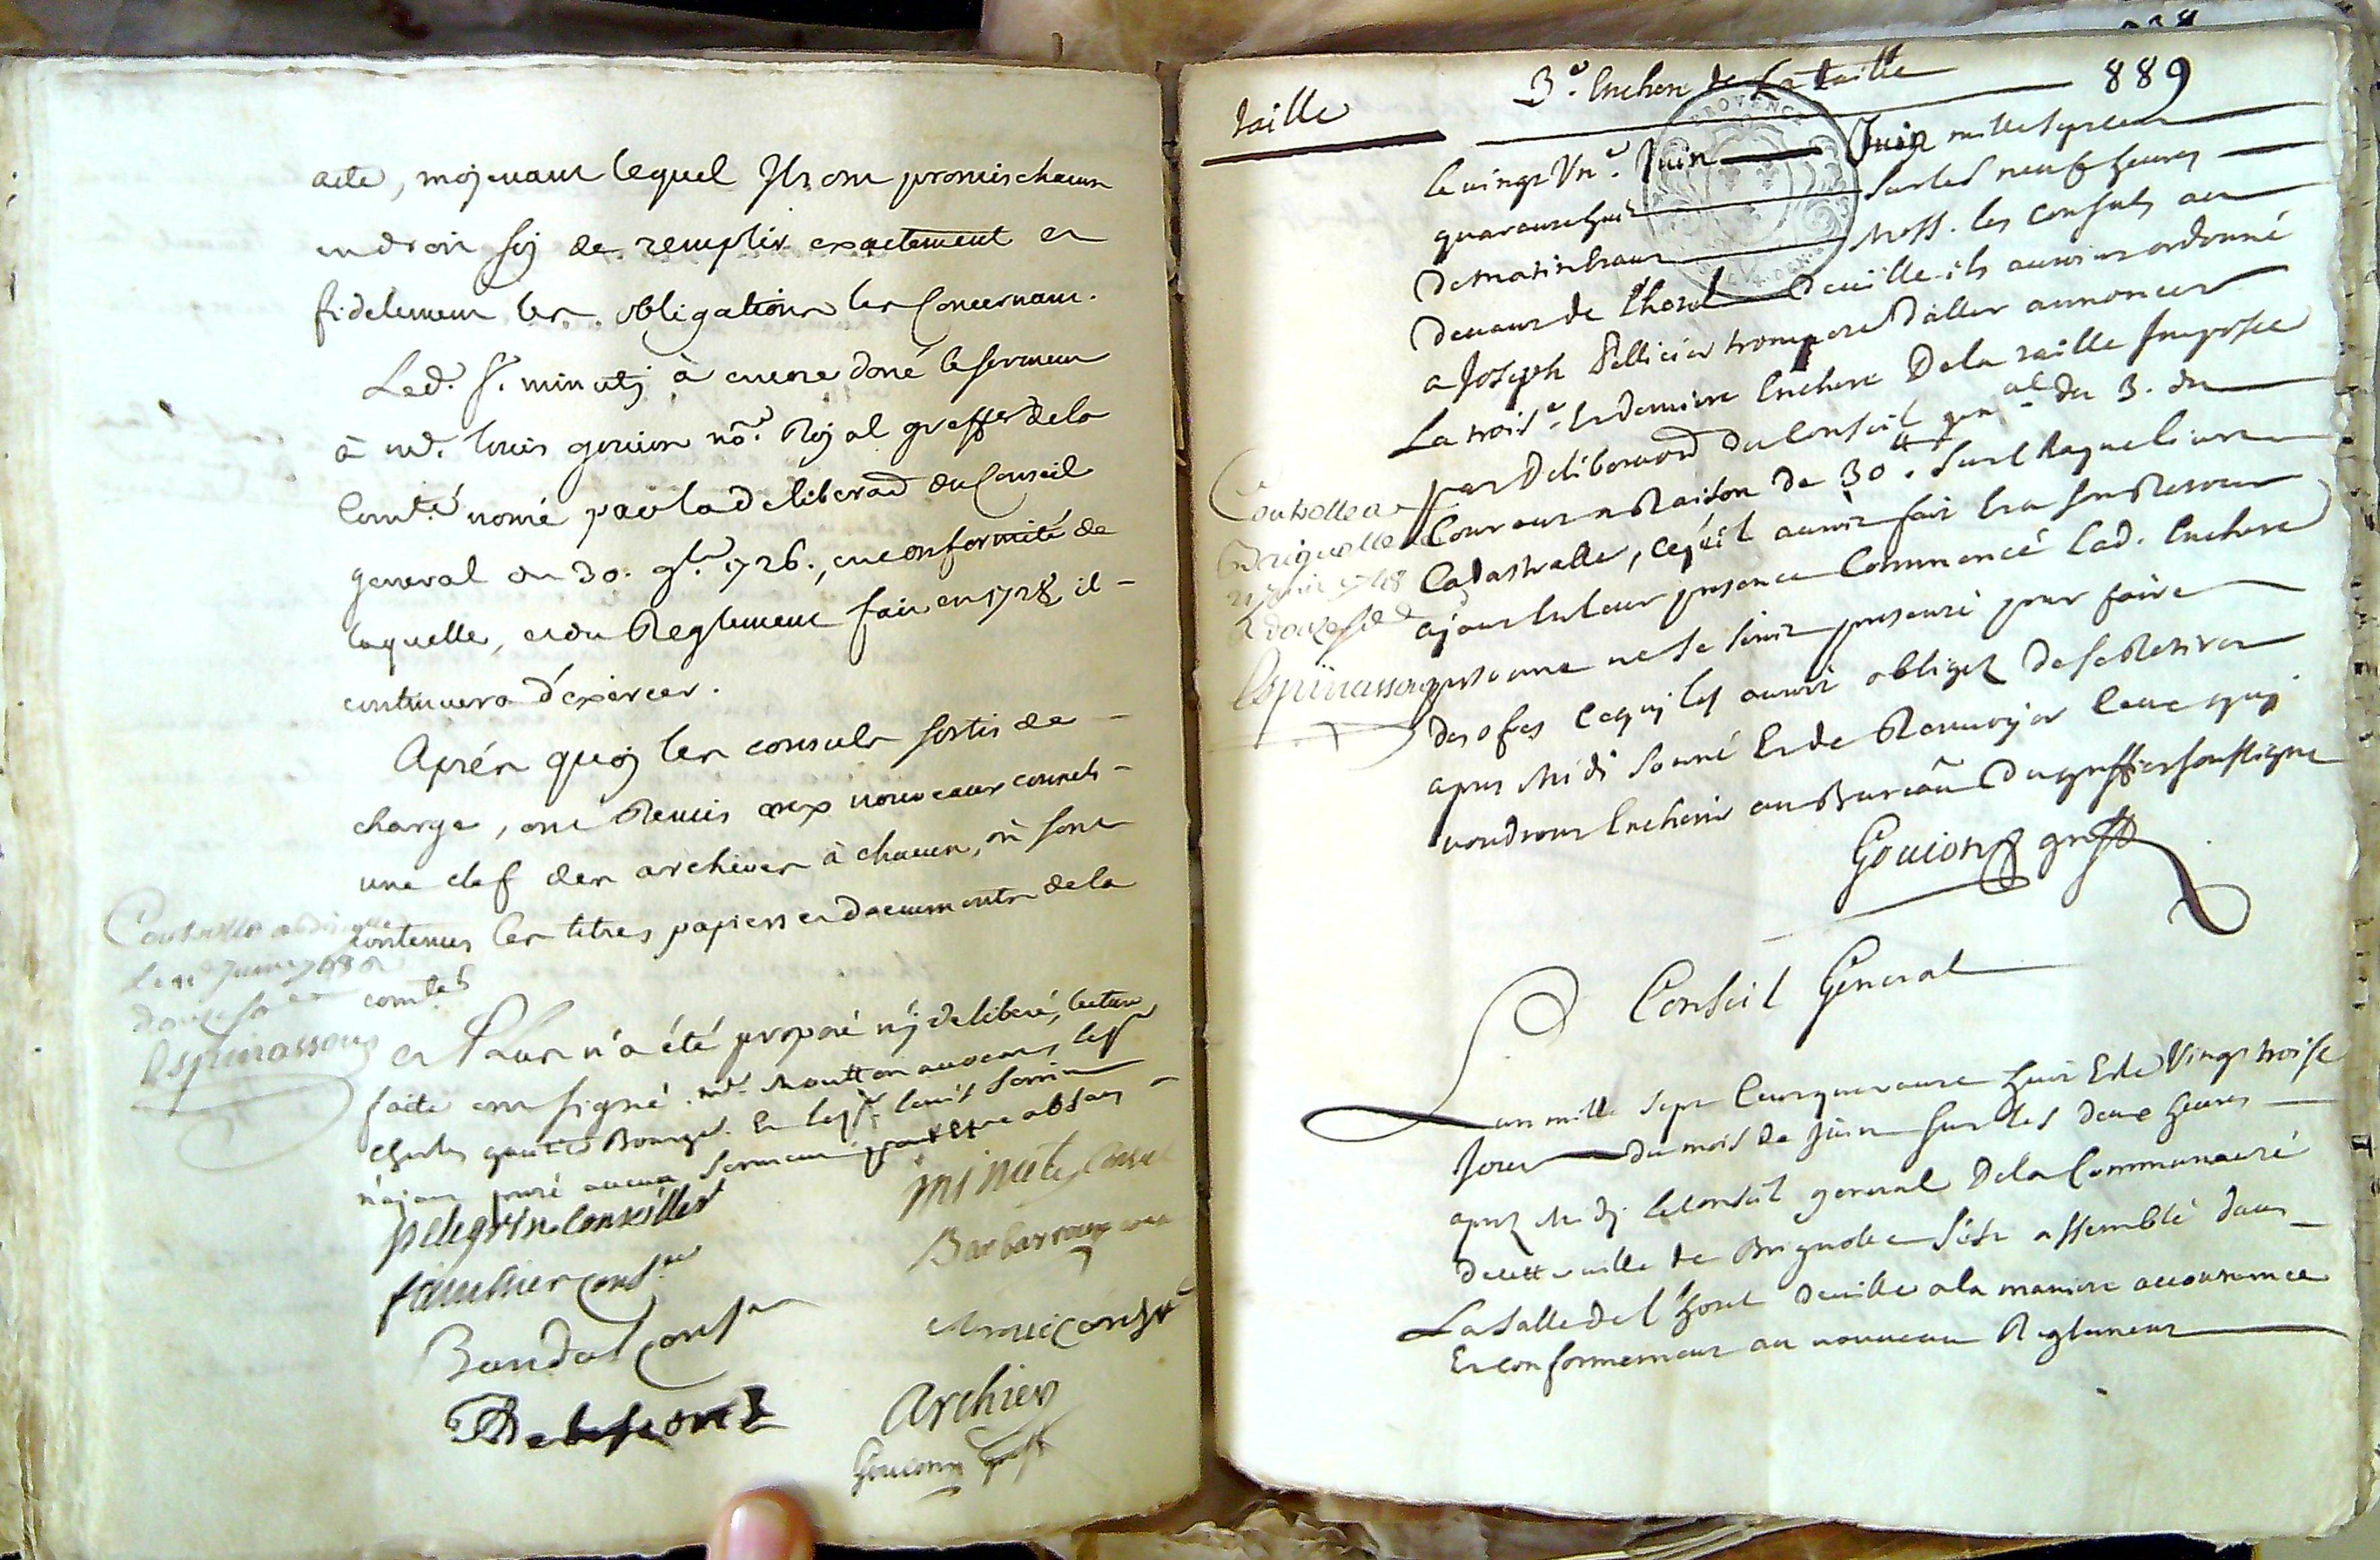 acte, moyenant lequel Ils ont promis chacun
en droit soy de remplir exactement et
fidelement les obligations les Concernant.
Led. Sr. minuty à encore doné le serment
à me. louis gouion no.re Royal greffier de la
Com.té nomé par la deliberaõn du Conseil
general du 30. 9bre 1726., en conformité de
laquelle, et du Reglement fait en 1728, il
continuera d'exercer.
Aprés quoy les consuls sortis de
charge, ont Remis aux nouveaux consuls
une clef des archives à chacun, où sont
contenus les titres papiers et documents de la
com.té
Controllé a Brignolle
le 11 Juin 1748 R
douze sols
Espinassoux
et Plus n'a été proposé ny deliberé, lecture
faite ont signé. me. Moutton avocat, les Sr
Charles gautier Bourge. Et le Sr. louis
n'ayant presté aucun serment pour Etre absans
pelegrin Conseiller
minuty Consul
fauchier Consr
Barbarroux
Baudal Consr
Amic Consr
Archier
Gouion greff
889
taille
3.e Enchere de La taille
le vingt Un.e Juin Juin mille sept cent
quarante huit sur les neuf heures
de matin Etant Mess. les Consuls au
devant de l'hotel de ville ils auroint ordonné
a Joseph Pellicier trompete d'aller annoncer
La trois.e Et derniere Enchere De la taille Imposée
par Deliberaõn du Conseil gen.al du 3. du
Courant a Raison de 30 ₶. sur Chaque livre
Cadastralle, ce qu'il auroit fait Et a son Retour
ayant En leur presence Commencé lad. Enchere
personne ne se seroit presenté pour faire
des ofres ce qui les auroit obligez de se Retirer
apres Midi sonné Et de Renvoyer ceux qui
voudront Encherir au Bureau Du greffier soussigné
Controllé a
Brignolle le
21 Juin 1748
R douze sols
Espinassoux
Gouion greff
Conseil General
L'an mille sept Cens quarante huit Et le Vingt troise
Jour du mois de Juin sur les deux heures
aprez Midy le Conseil general De la Communauté
de cette ville de Brignolle s'est assemblé dans
La Salle de l'hotel de ville a la maniere accoutumée
Et conformement au nouveau Reglement